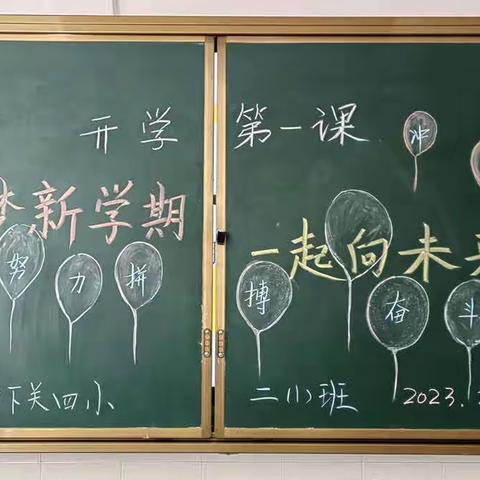 开学第一课
冲
梦新学期
一起向未来
努力拼
搏奋斗
下关四小
二(1)班
2023.